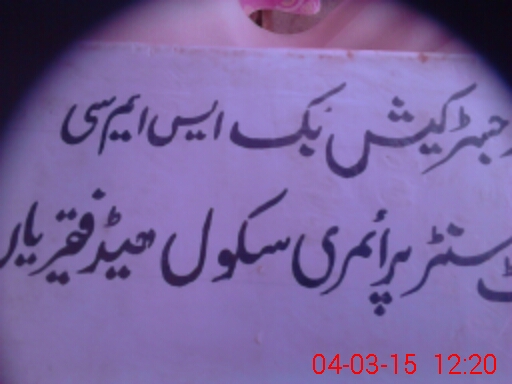 رجسٹرکیش بک ایس ایم سی
سنٹر پرائمری سکول ھیڈ فقیر یار
04-03-15 12:20